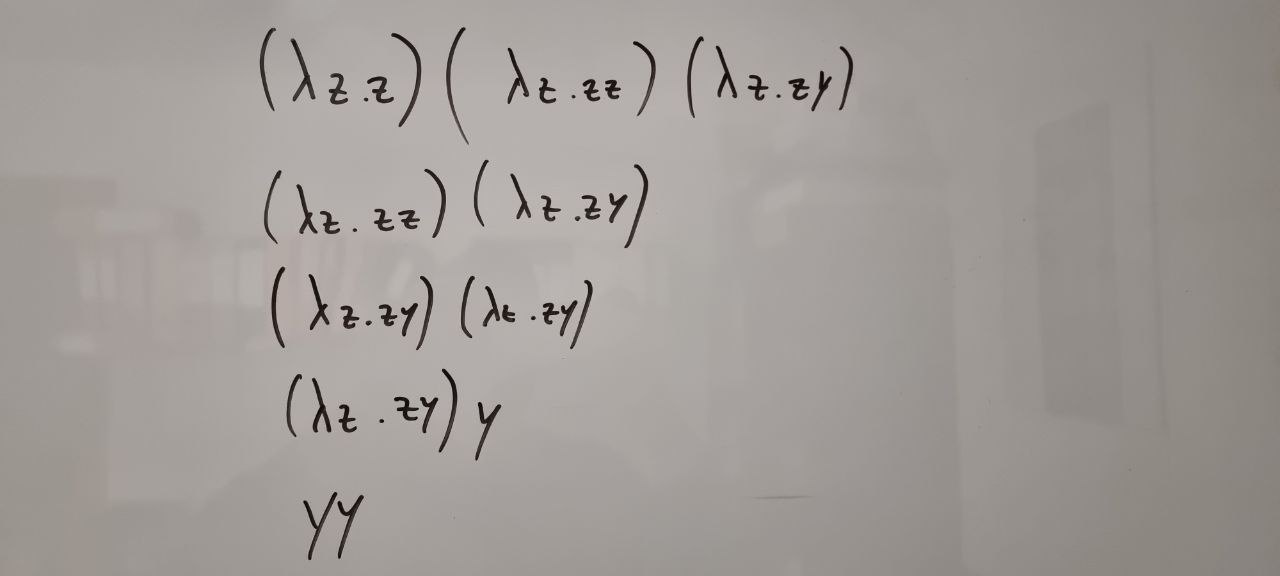 (λz.z)(λz.zz)(λz.zy)
(λz.zz)(λz.zy)
(λz.zy)(λz.zy)
(λz.zy)y
yy